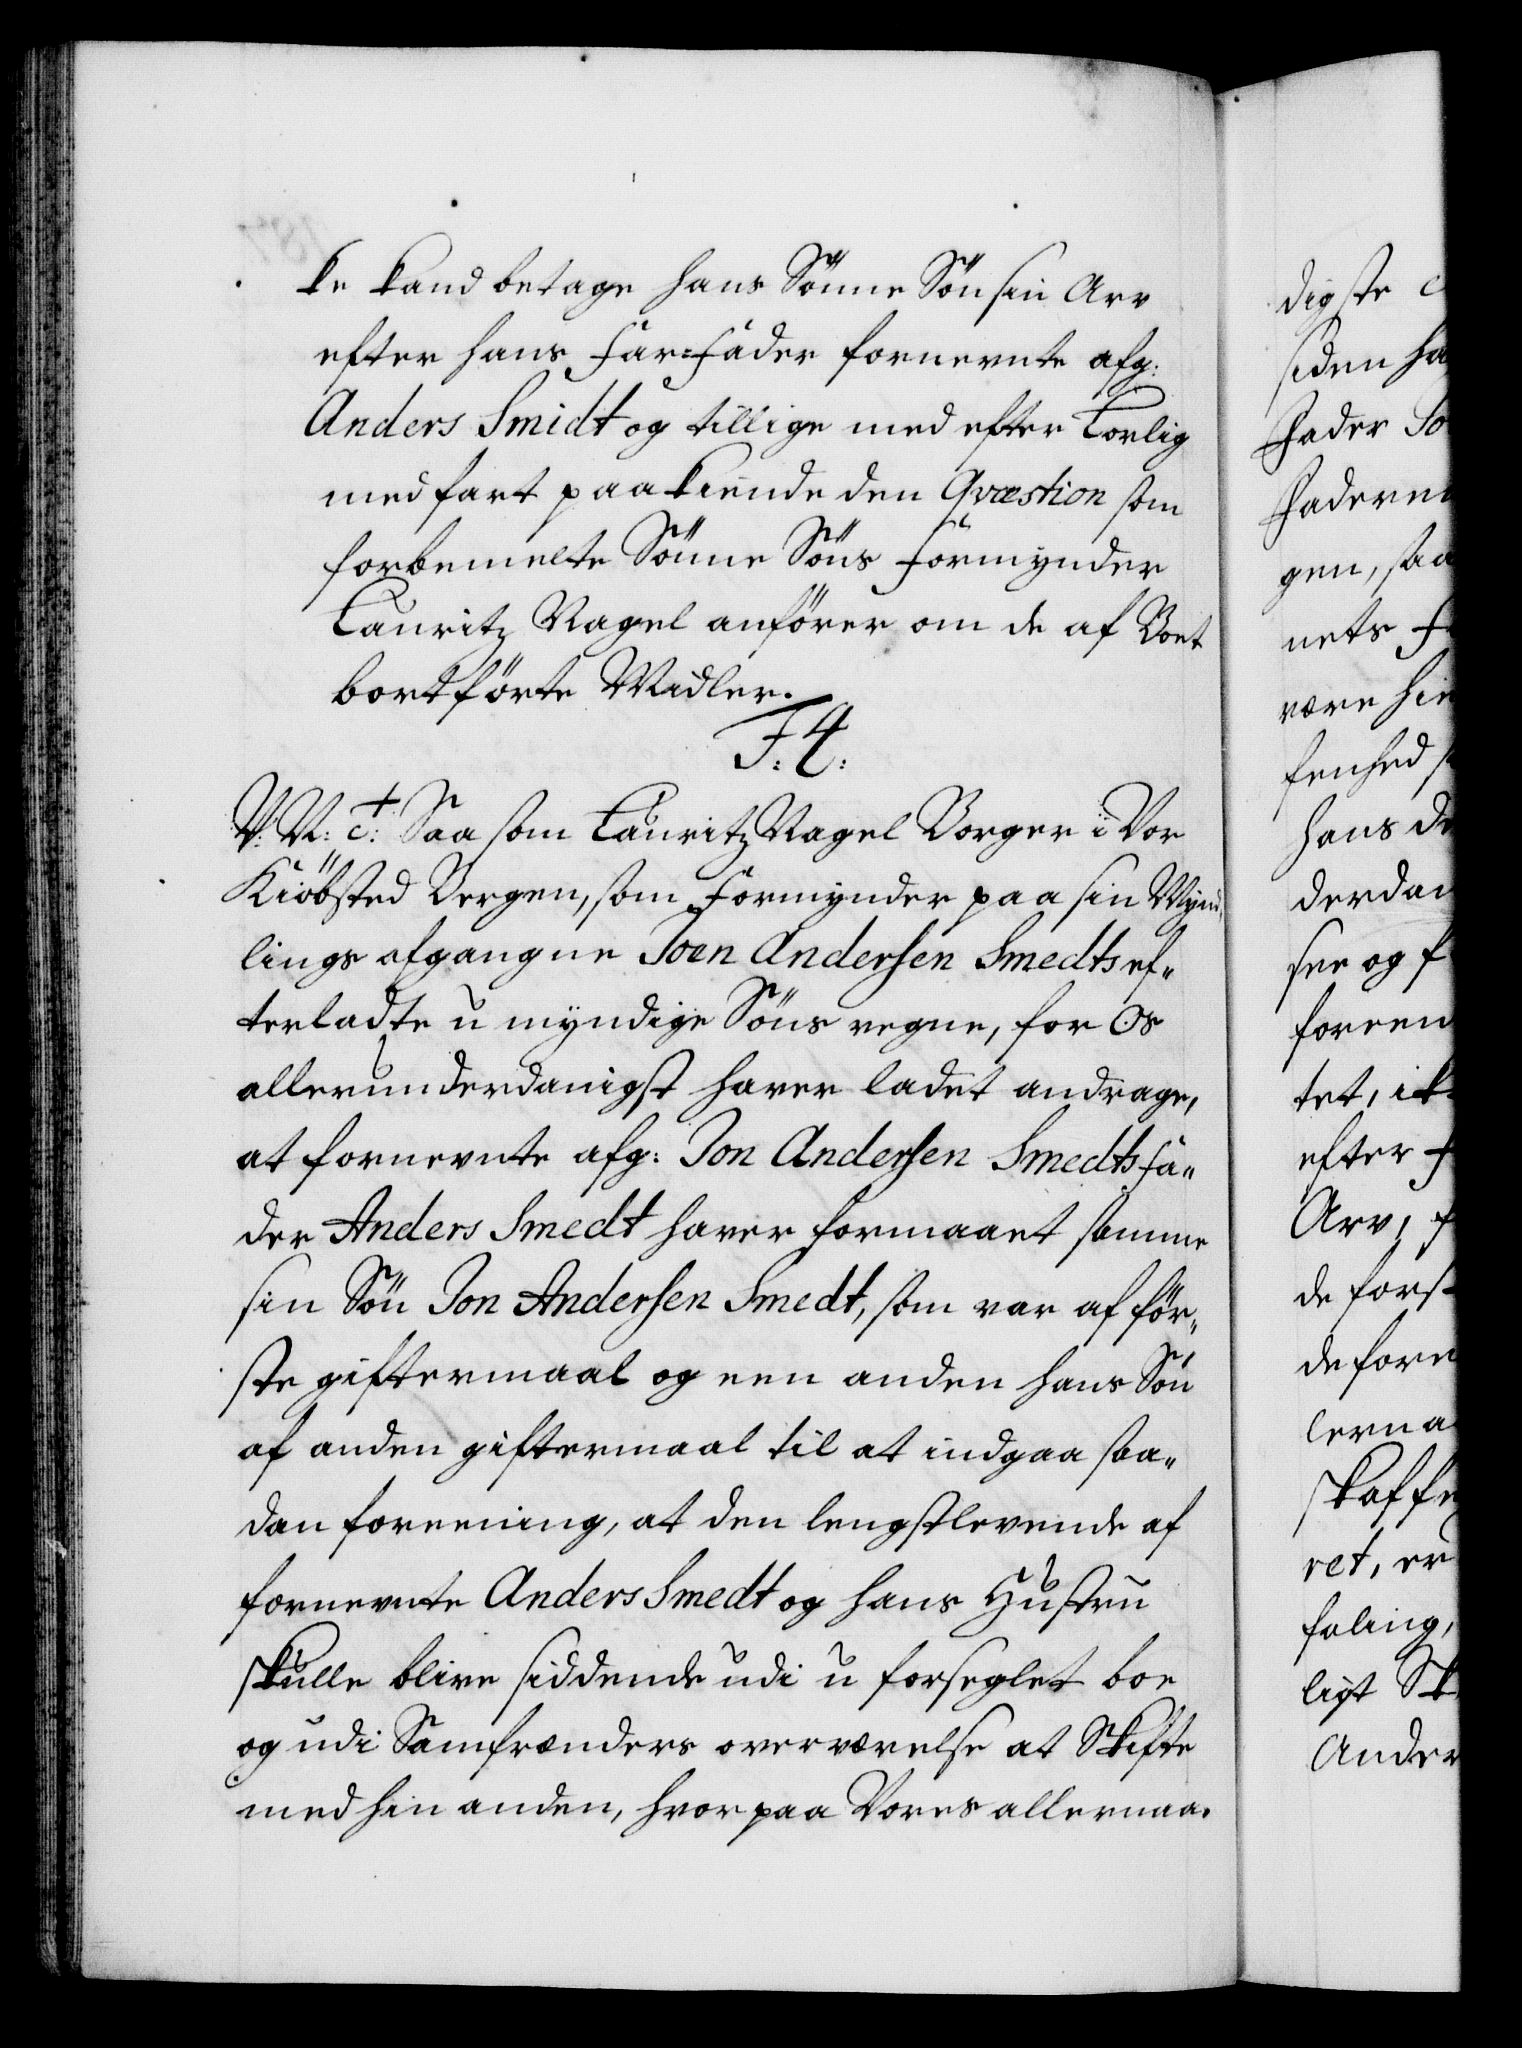 ke kand betage hans Sönne Sön sin Arv
efter hans Far=Fader fornevnte afg:
Anders Smidt og tillige med efter Lovlig
medfart paakiende den Qvæstion som
forbemelte Sönne Söns Formynder
Lauritz Nagel anförer om de af Boet
bortförte Midler.
F. 4:
V: N: C: Saa som Lauritz Nagel Borger i Vor
Kiöbsted Bergen, som Formynder paa sin Mynd-
lings afgangne Joen Andersen Smedts ef-
terladte u myndige Söns vegne, for Os
allerunderdanigst haver ladet andrage,
at fornevnte afg: Jon Andersen Smedts Fa-
der Anders Smedt haver formaaet samme
sin Sön Jon Andersen Smedt, som var af för-
ste giftermaal og een anden hans Sön
af anden giftermaal til at indgaa saa-
dan foreening, at den lengstlevende af
fornevnte Anders Smedt og hans Hustru
skulle blive siddende udi u forseglet boe
og udi Samfrænders overværelse at Skifte
med hin anden, hvor paa Vores allernaa-
digste
siden ha
Fader Jo
Faderen
gen, saa
nets F
være hin
fenhed
hans de
derdan
see og f
foreen
tet, ik
efter F
Arv,
de forst
de fore
lerna
skaffe
ret, er
faling,
ligt Sk
Ander